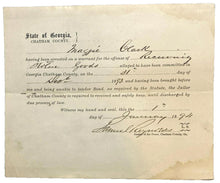 State of Georgia,
CHATHAM COUNTY.
Maggie Clark
having been arrested on a warrant for the offense of Receiving
Stolen Goods alleged to have been committed in
Georgia Chatham County, on the 31 day of
Dec 1893, and having been brought before
me and being unable to tender Bond, as required by the Statute, the Jailor
of Chatham County is required to receive and safely keep, until discharged by
due process of law.
Witness my hand and seal, this 1st
day of January 1894